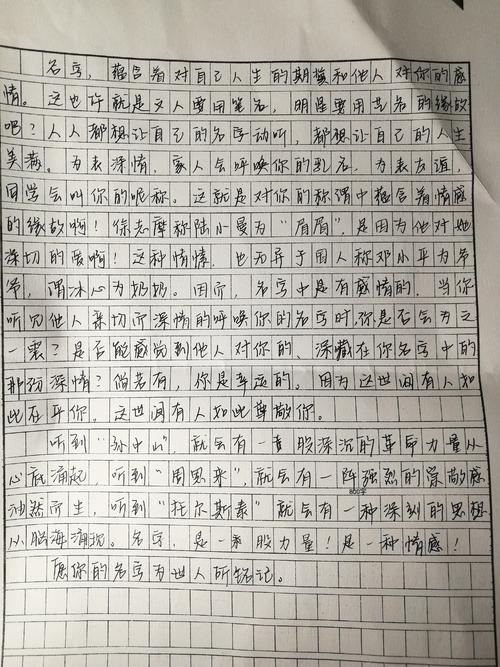 名字，蕴含着对自己人生的期望和他人对你的感
情。这也许就是文人要用笔名，明星要用艺名的缘故
吧？人人都想让自己的名字动听，都想让自己的人生
美满。为表深情，家人会呼唤你的乳名，为表友谊，
同学会叫你的昵称。这就是对你的称谓中蕴含着情感
的缘故啊！徐志摩称陆小曼为“眉眉”，是因为他对她
深切的爱啊！这种情愫，也无异于国人称邓小平为爷
爷，谓冰心为奶奶。因而，名字中是有感情的，当你
听见他人亲切而深情的呼唤你的名字时，你是否会为之
一震？是否能感觉到他人对你的、深藏在你名字中的
那份深情？倘若有，你是幸运的。因为这世间有人如
此在乎你。这世间有人如此尊敬你。
听到“孙中山”，就会有一股深沉的革命力量从
心底涌起，听到“周恩来”，就会有一阵强烈的崇敬感
油然而生，听到“托尔斯泰”就会有一种深刻的思想
从脑海涌现。名字，是一股力量！是一种情感！
愿你的名字为世人所铭记。